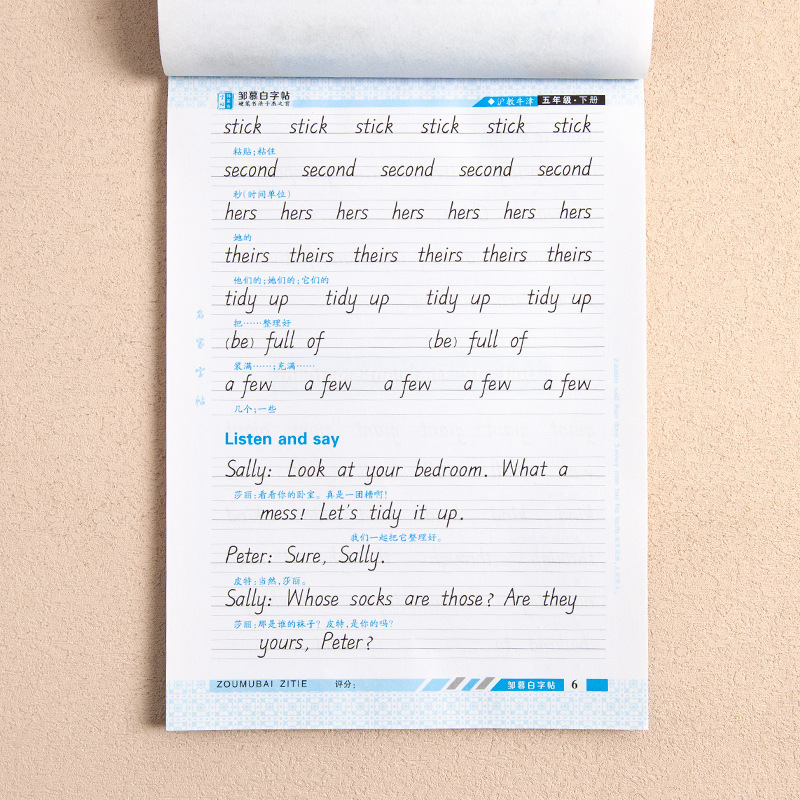 邹慕白字帖
硬笔书法十杰之首
◆沪教牛津 五年级·下册
stick stick stick stick stick stick
粘贴;粘住
second second second second second
秒(时间单位)
hers hers hers hers hers hers hers
她的
theirs theirs theirs theirs theirs theirs
他们的;她们的;它们的
tidy up tidy up tidy up tidy up
把……整理好
(be) full of (be) full of
装满……;充满……
a few a few a few a few a few
几个;一些
Listen and say
Sally: Look at your bedroom. What a
莎丽:看看你的卧室。真是一团糟啊!
mess! Let's tidy it up.
我们一起把它整理好。
Peter: Sure, Sally.
皮特:当然,莎丽。
Sally: Whose socks are those? Are they
莎丽:那是谁的袜子? 皮特,是你的吗?
yours, Peter?
名家字帖
ZOUMUBAI ZITIE 评分: 邹慕白字帖 6